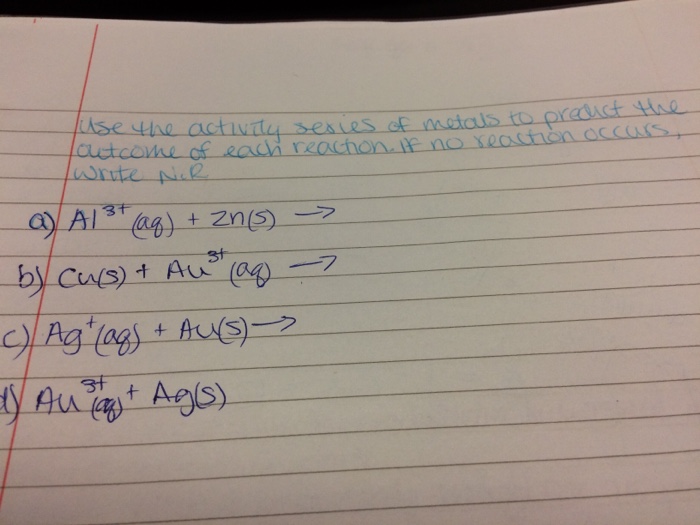 Use the activity series of metals to predict the
outcome of each reaction. If no reaction occurs,
write N.R
a) Al³⁺(aq) + Zn(s) →
b) Cu(s) + Au³⁺(aq) →
c) Ag⁺(aq) + Au(s) →
d) Au³⁺(aq) + Ag(s)